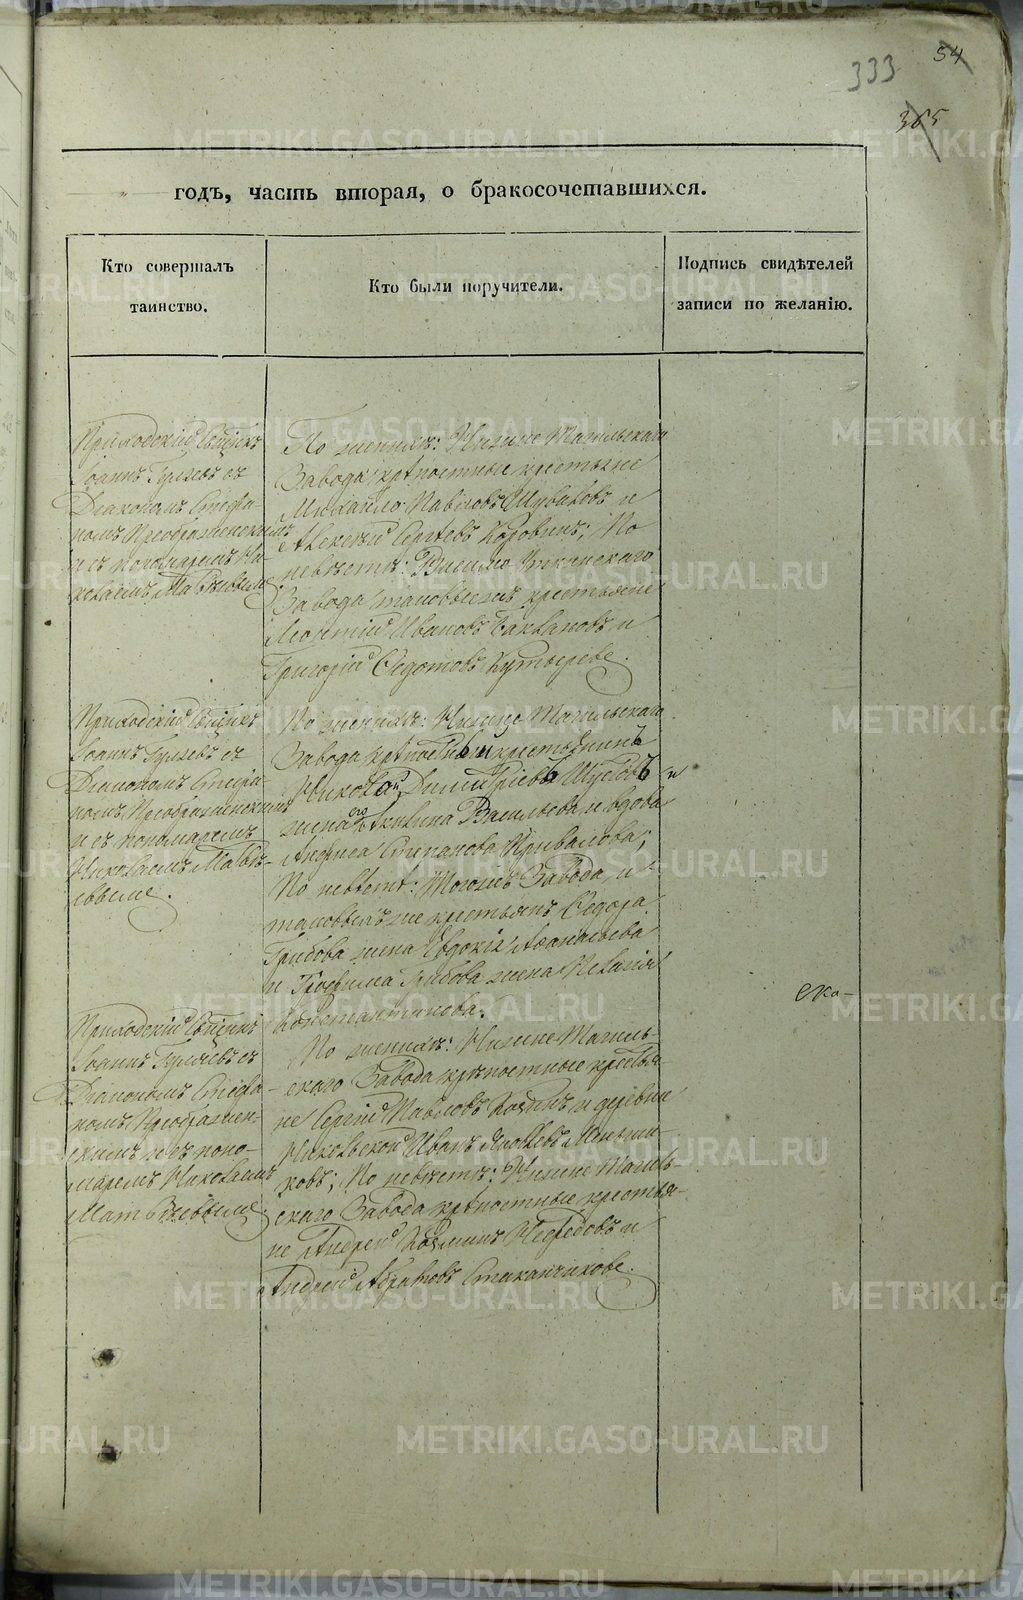 333
54
365
годъ, часть вторая, о бракосочетавшихся.
Кто совершалъ
таинство.
Кто были поручители.
Подпись свидѣтелей
записи по желанію.
Приходскій Свщнкъ
Іоаннъ Гуляевъ съ
Діакономъ Стефа-
номъ Преображенскимъ
и съ пономаремъ Ни-
колаемъ Матвѣевымъ
По женихѣ: Нижне Тагильскаго
Завода крѣпостные крестьяне
Михайло Павловъ и
Алексѣй Сергѣевъ Коровинъ; По
невѣстѣ: Висимо Уткинскаго
Завода таковыежъ крестьяне
Леонтій Ивановъ Баклановъ и
Григорій Ѳедотовъ
Приходскій Свщнкъ
Іоаннъ Гуляевъ съ
Діакономъ Стефа-
номъ Преображенскимъ
и съ пономаремъ
Николаемъ Матвѣ-
евымъ.
По женихѣ: Нижне Тагильскаго
Завода крѣпостный крестьянинъ
Николай Димитріевъ Шустовъ и
жена его Акилина Васильева и вдова
Степанова Привалова;
По невѣстѣ: Тогожъ Завода и
таковыхъ же крестьянъ Ѳедора
Грибова жена Евдокія Аѳанасьева
и Трофима Грибова жена Пелагія
Константинова.
ека-
Приходскій Свщнкъ
Іоаннъ Гуляевъ съ
Діакономъ Стефа-
номъ Преображен-
скимъ и съ поно-
маремъ Николаемъ
Матвѣевымъ.
По женихѣ: Нижне Тагиль-
скаго Завода крѣпостные крестья
не Сергій Павловъ и деревни
Никольской Иванъ Яковлевъ Меньши-
ковъ; По невѣстѣ: Нижне Тагиль-
скаго Завода крѣпостные крестья-
не Андрей Козминъ Нефедовъ и
Андрей Стаканчиковъ.
METRIKI.GASO-URAL.RU